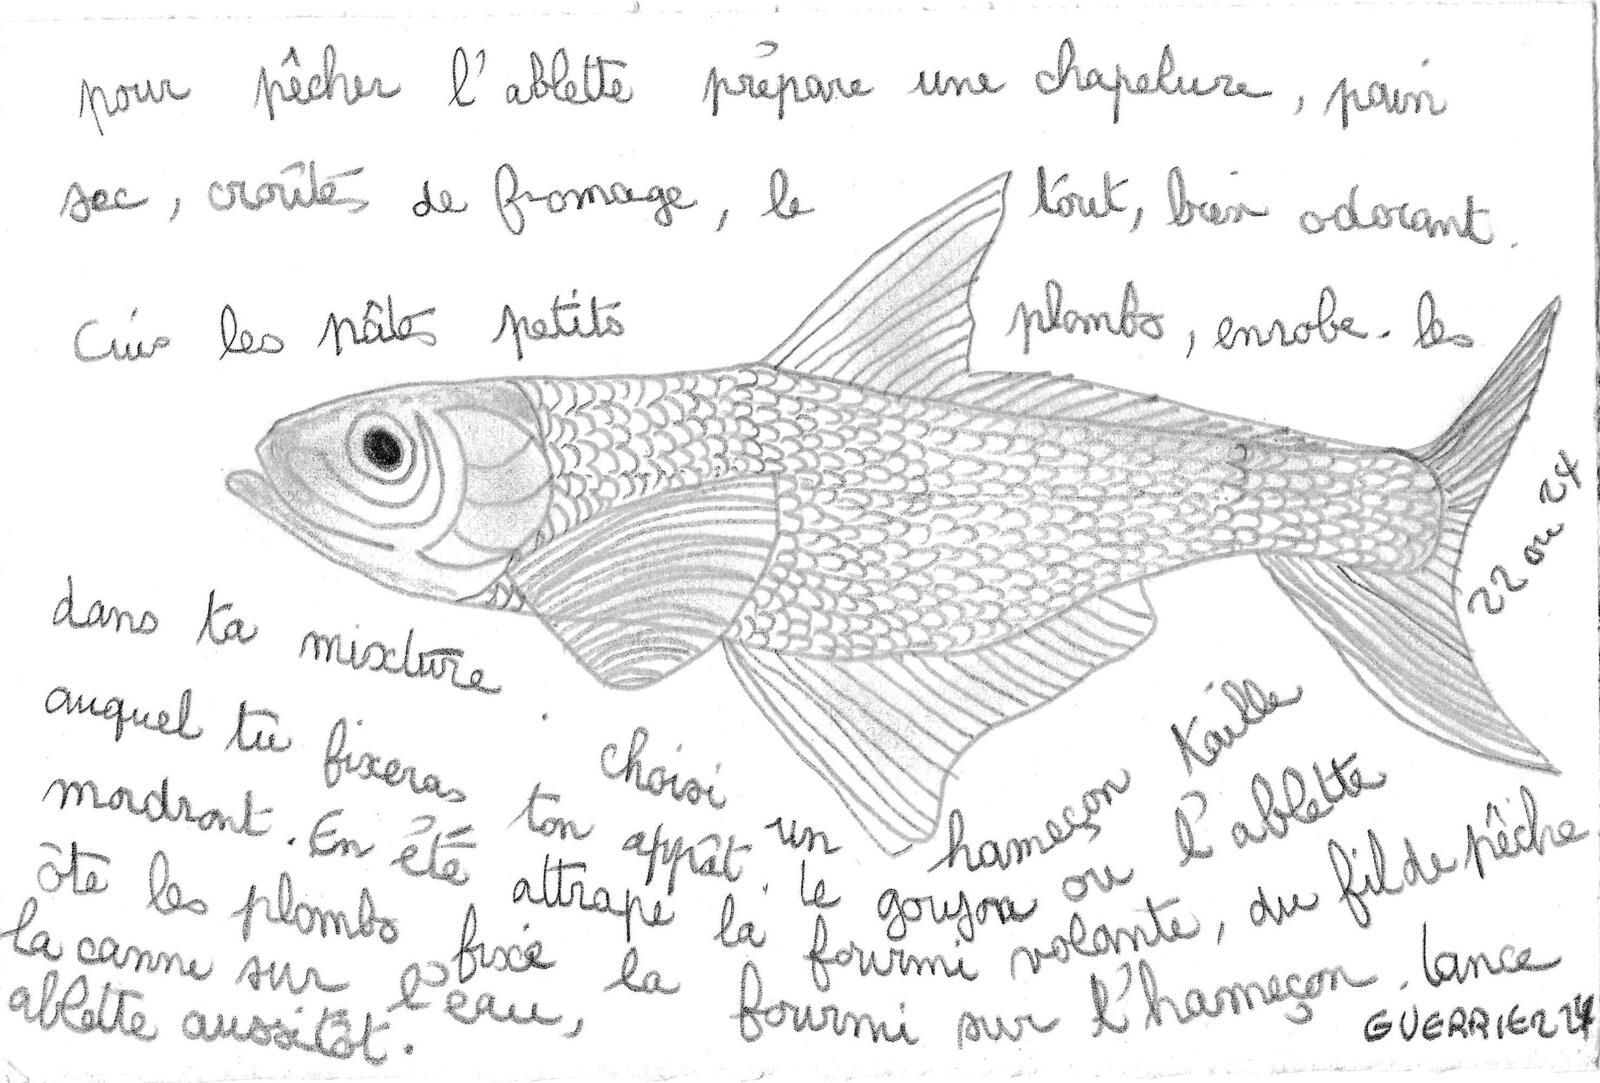 pour pêcher l'ablette prépare une chapelure, pain
sec, croûtes de fromage, le tout, bien odorant.
Cuis les pâtes petits plombs, enrobe-les
dans ta mixture choisi un hameçon taille 22 ou 24
auquel tu fixeras ton appât. le goujon ou l'ablette
mordront. En été attrape la fourmi volante, du fil de pêche
ôte les plombs fixe la fourmi sur l'hameçon. lance
la canne sur l'eau,
ablette aussitôt.
GUERRIER 24